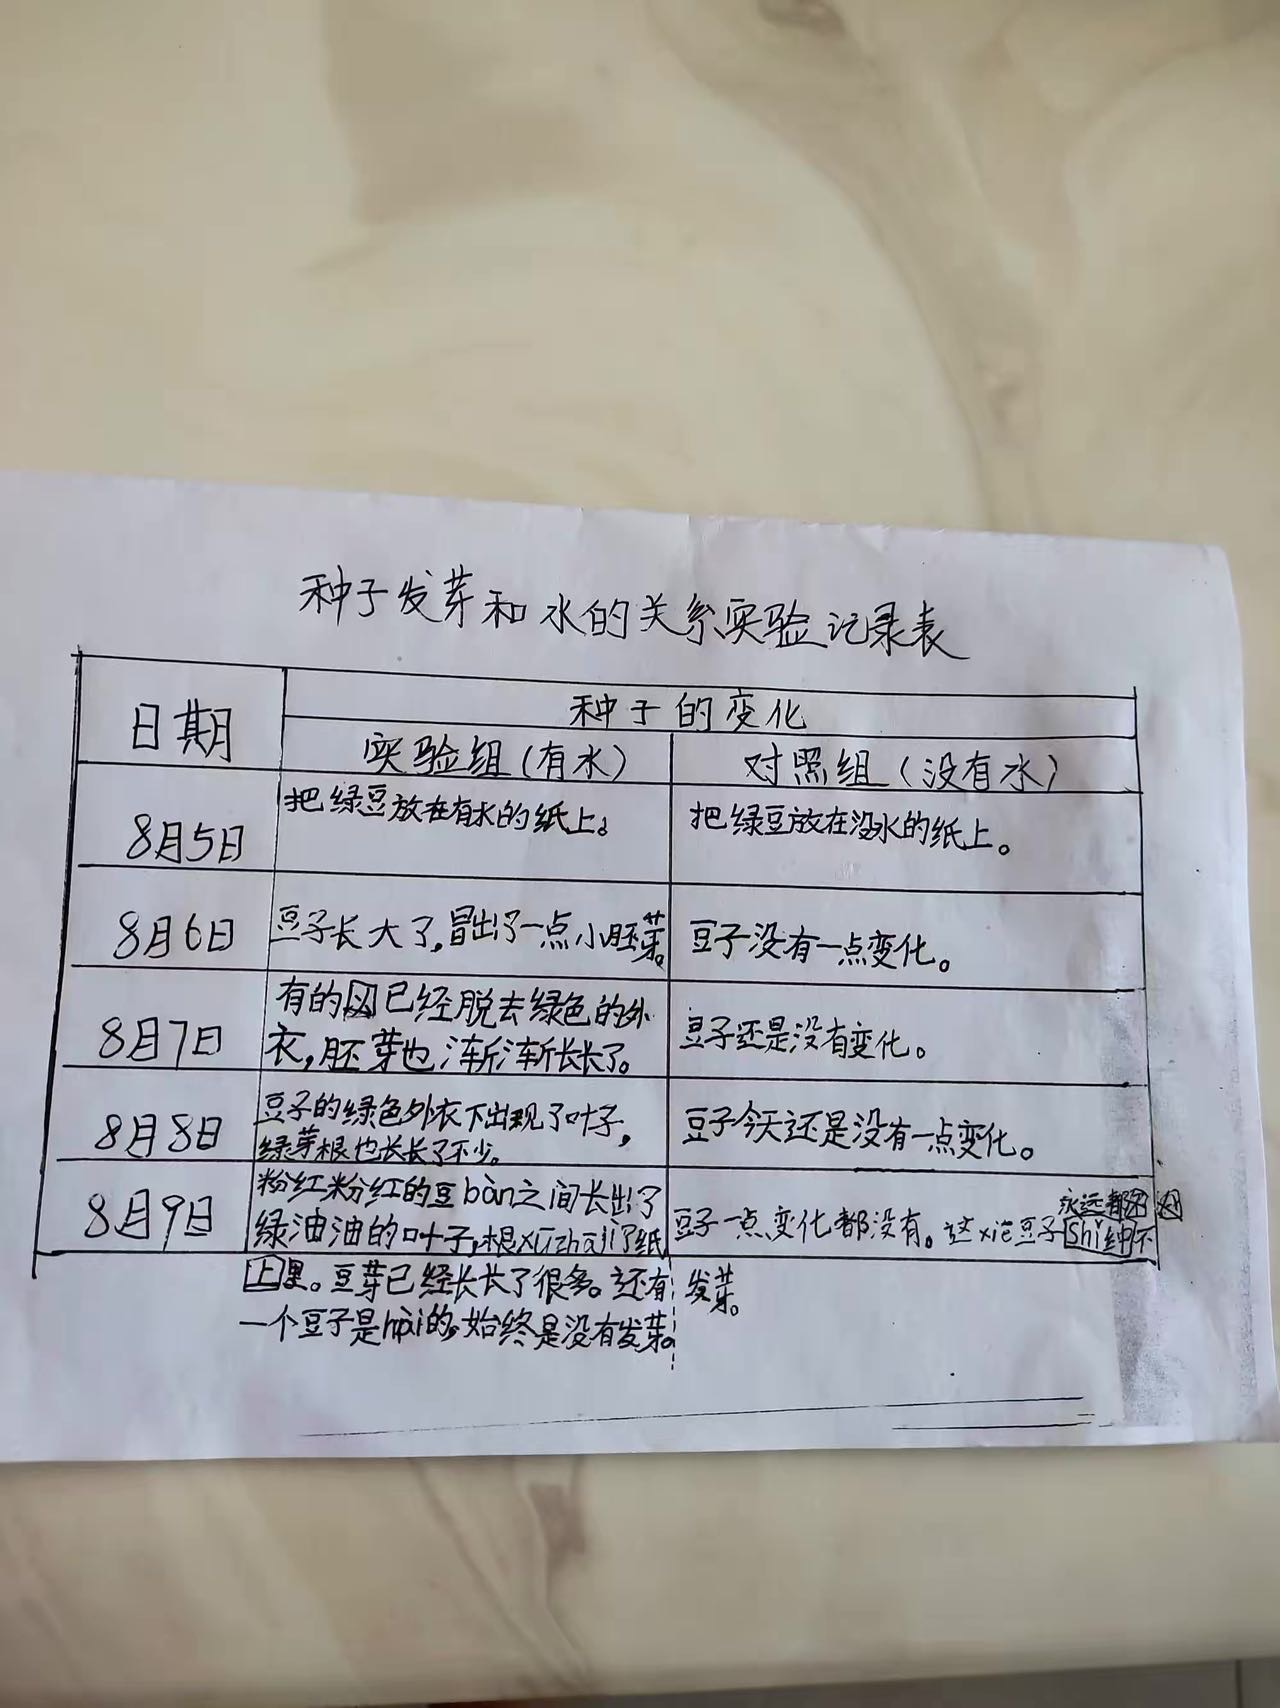 种子发芽和水的关系实验记录表
日期
种子的变化
实验组(有水)
对照组(没有水)
8月5日
把绿豆放在有水的纸上。
把绿豆放在没水的纸上。
8月6日
豆子长大了,冒出了一点小胚芽。
豆子没有一点变化。
8月7日
有的已经脱去绿色的外
衣,胚芽也渐渐长长了。
豆子还是没有变化。
8月8日
豆子的绿色外衣下出现了叶子,
绿芽根也长长了不少。
豆子今天还是没有一点变化。
8月9日
粉红粉红的豆bàn之间长出了
绿油油的叶子,根xūzhājì了纸
里。豆芽已经长长了很多。还有
一个豆子是huài的,始终是没有发芽。
永远都
豆子一点变化都没有。这xiē豆子不
发芽。